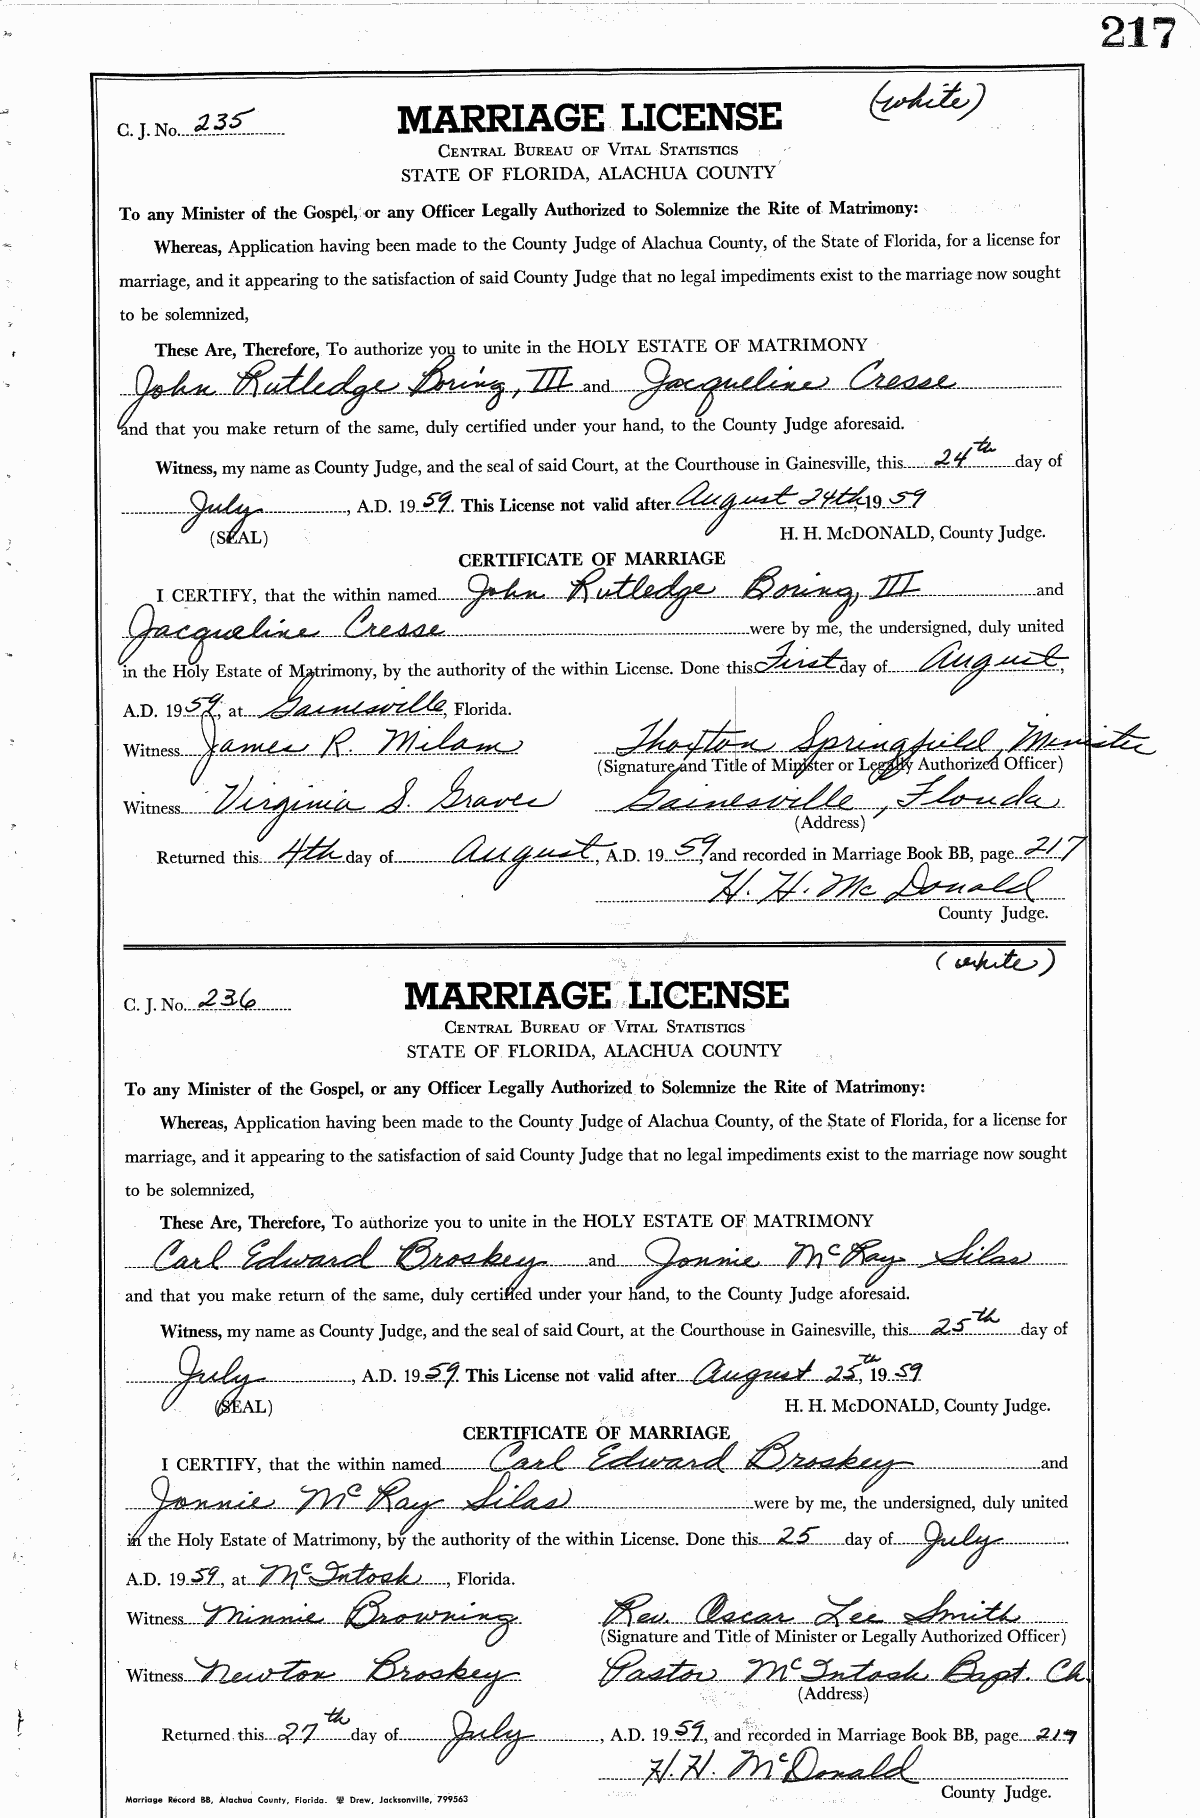 217
(white)
C. J. No. 235
MARRIAGE LICENSE
CENTRAL BUREAU OF VITAL STATISTICS
STATE OF FLORIDA, ALACHUA COUNTY
To any Minister of the Gospel, or any Officer Legally Authorized to Solemnize the Rite of Matrimony:
Whereas, Application having been made to the County Judge of Alachua County, of the State of Florida, for a license for
marriage, and it appearing to the satisfaction of said County Judge that no legal impediments exist to the marriage now sought
to be solemnized,
These Are, Therefore, To authorize you to unite in the HOLY ESTATE OF MATRIMONY
John Rutledge Boring, III and Jacqueline Cresse
and that you make return of the same, duly certified under your hand, to the County Judge aforesaid.
Witness, my name as County Judge, and the seal of said Court, at the Courthouse in Gainesville, this 24th day of
July, A.D. 1959. This License not valid after August 24th, 1959
(SEAL) H. H. McDONALD, County Judge.
CERTIFICATE OF MARRIAGE
I CERTIFY, that the within named John Rutledge Boring, III and
Jacqueline Cresse were by me, the undersigned, duly united
in the Holy Estate of Matrimony, by the authority of the within License. Done this First day of August,
A.D. 1959, at Gainesville, Florida.
Witness James R. Milam Thaxton Springfield, Minister
(Signature and Title of Minister or Legally Authorized Officer)
Witness Virginia S. Graves Gainesville, Florida
(Address)
Returned this 4th day of August, A.D. 1959, and recorded in Marriage Book BB, page 217
H. H. McDonald
County Judge.
(white)
C. J. No. 236
MARRIAGE LICENSE
CENTRAL BUREAU OF VITAL STATISTICS
STATE OF FLORIDA, ALACHUA COUNTY
To any Minister of the Gospel, or any Officer Legally Authorized to Solemnize the Rite of Matrimony:
Whereas, Application having been made to the County Judge of Alachua County, of the State of Florida, for a license for
marriage, and it appearing to the satisfaction of said County Judge that no legal impediments exist to the marriage now sought
to be solemnized,
These Are, Therefore, To authorize you to unite in the HOLY ESTATE OF MATRIMONY
Carl Edward Broskey and Jonnie McRay Silas
and that you make return of the same, duly certified under your hand, to the County Judge aforesaid.
Witness, my name as County Judge, and the seal of said Court, at the Courthouse in Gainesville, this 25th day of
July, A.D. 1959. This License not valid after August 25th, 1959
(SEAL) H. H. McDONALD, County Judge.
CERTIFICATE OF MARRIAGE
I CERTIFY, that the within named Carl Edward Broskey and
Jonnie McRay Silas were by me, the undersigned, duly united
in the Holy Estate of Matrimony, by the authority of the within License. Done this 25 day of July
A.D. 1959, at McIntosh, Florida.
Witness Minnie Browning Rev. Oscar Lee Smith
(Signature and Title of Minister or Legally Authorized Officer)
Witness Newton Broskey Pastor McIntosh Bapt. Ch.
(Address)
Returned this 27th day of July, A.D. 1959, and recorded in Marriage Book BB, page 217
H. H. McDonald
County Judge.
Marriage Record BB, Alachua County, Florida. Drew, Jacksonville, 799563